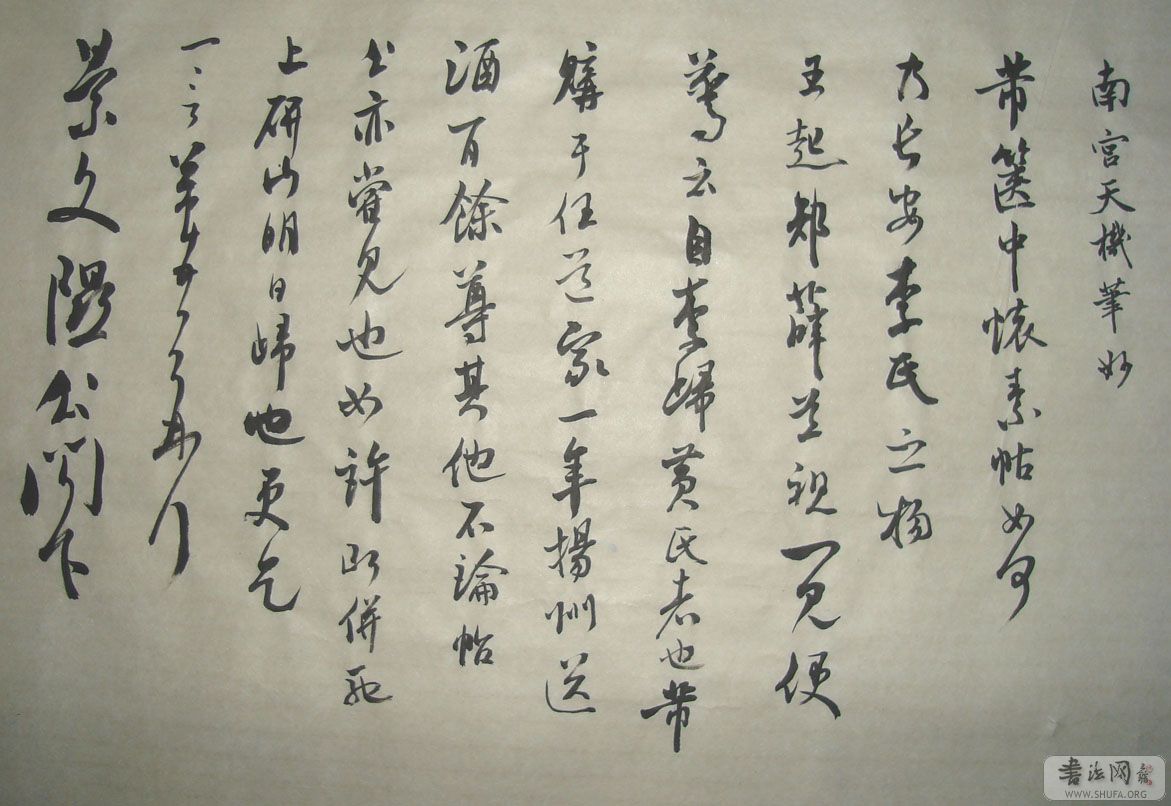 南宮天機筆妙
芾篋中懷素帖如何
乃長安李氏之物
王起部薛道祖一見便
驚云自李歸黄氏者也芾
購于任道家一年揚州送
酒百餘尊其他不論帖
公亦嘗見也如許即併馳
上研山明日歸也更乞
一言芾頓首再拜
景文隰公閣下
書法网
WWW.SHUFA.ORG